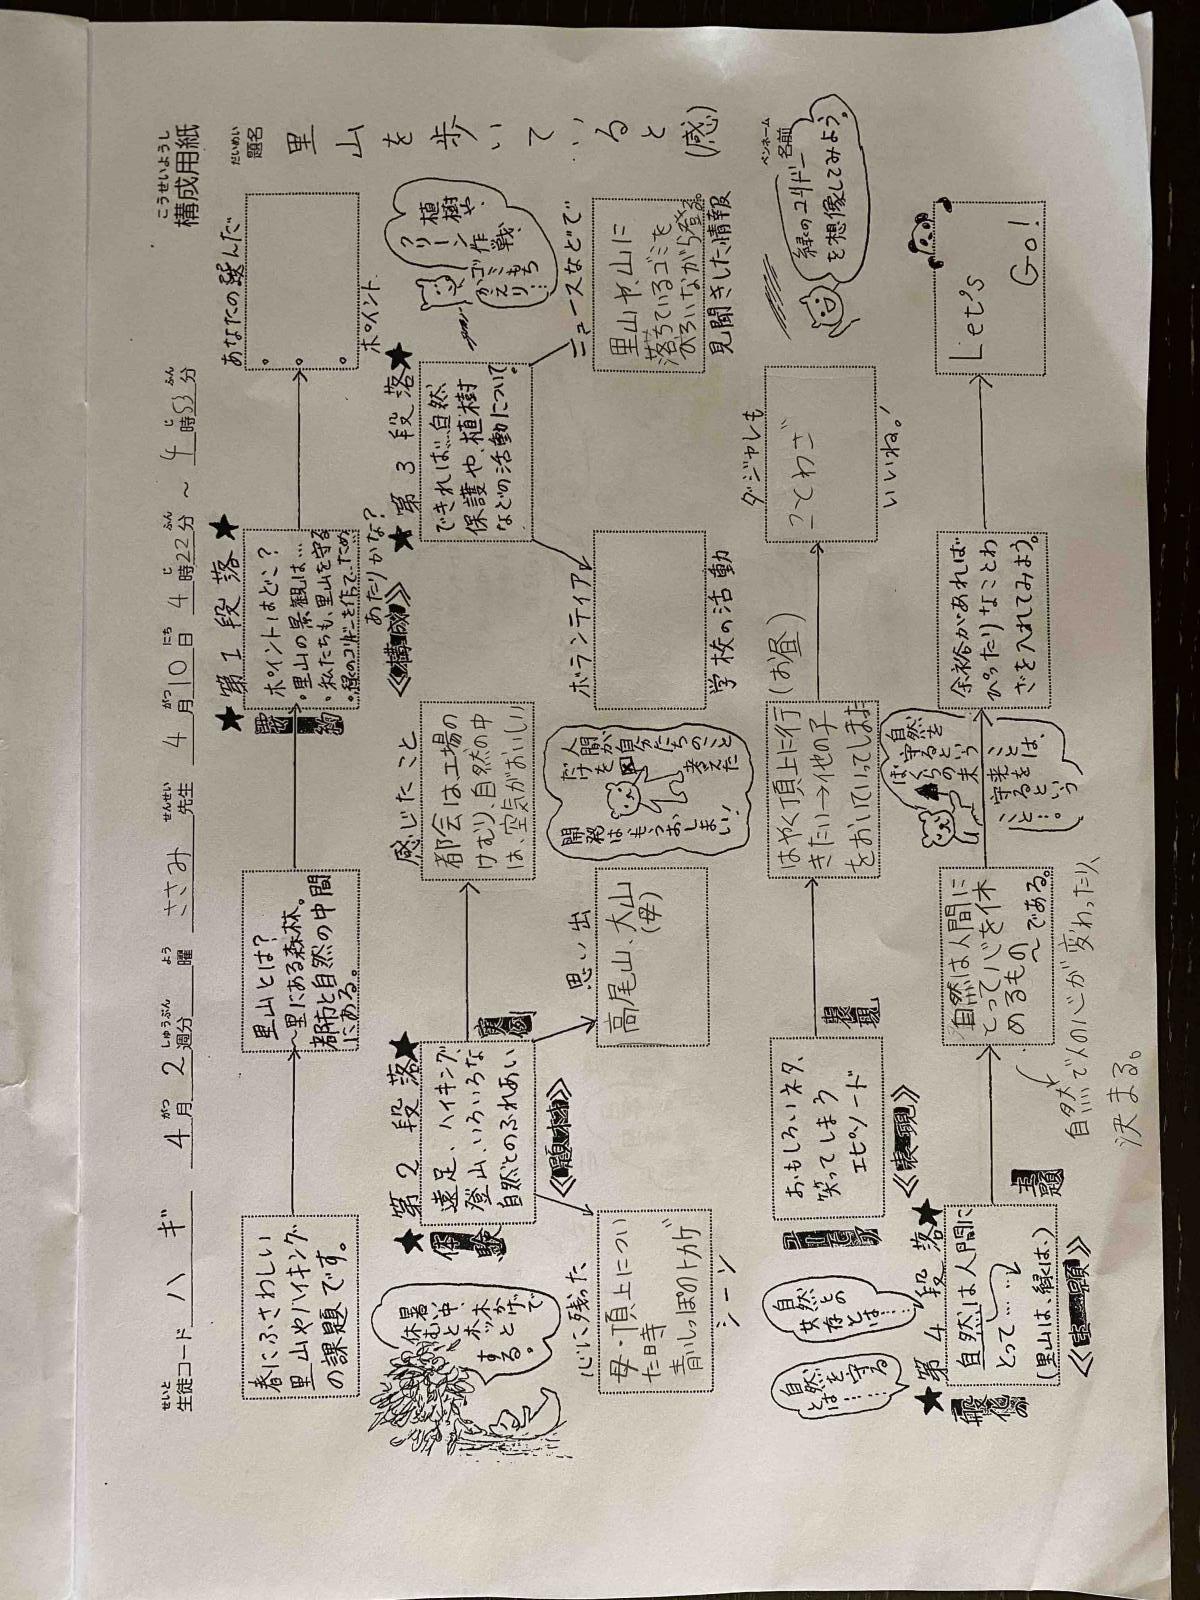 こうせいようし
構成用紙
だいめい
題名 里山を歩いていると(感)
せいと
生徒コード ハギ 4月2週分 ささみ先生 4月10日4時22分~4時53分
がつ しゅうぶん よう せんせい がつ にち じ ふん じ ふん
曜
ペンネーム
名前
春にふさわしい
里山やハイキング
の課題です。
里山とは?
~里にある森林。
都市と自然の中間
にある。
★第1段落★
要約
ポイントはどこ?
。里山の景観は…
・私たちも、里山を守る
。緑のコリドーを作って、ため
あたりかな?
あなたの選んだ
。
。
。
ポイント
休むと中、
暑い中、
木かげで
ホッと
する。
★第2段落★
体験
遠足、ハイキング
登山、いろいろな
自然とのふれあい
《題材》
実例
感じたこと
都会は工場の
けむり、自然の中
は、空気がおいしい
《構成》
★第3段落★
できれば…自然
保護や、植樹
などの活動について。
植樹や、
クリーン作戦、
ゴミもち
かえり…
心に残った
母・頂上につい
た時
青いしっぽのトカゲ
シーン
思い出
高尾山、大山
(母)
人間が
だけを自分たちのこと
考えた
開発は、もうおしまい!
ボランティア
学校の活動
ニュースなどで
里山や、山に
落ちているゴミを
ひろいながら登る。
見聞きした情報
自然との
共存
とは……
自然を守る
とは……
ユーモア
おもしろいネタ、
笑ってしまう
エピソード
《表現》
表現
はやく頂上に行(お昼)
きたい→他の子
をおいていってしまった
ダジャレも
ことわざ
いいね。
緑のコリドー
を想像してみよう。
★第4段落★
一般化の
自然は人間に
とって……
(里山は、緑は、)
《主題》
主題
自然は人間に
とって心を休
めるもの
~である。
自然で人の心が変わったり、
決まる。
自然を
守ると
いうことは、
ぼくらの未来を
守ること…。
余裕があれば
ぴったりなことわ
ざを入れてみよう。
Let's
Go!